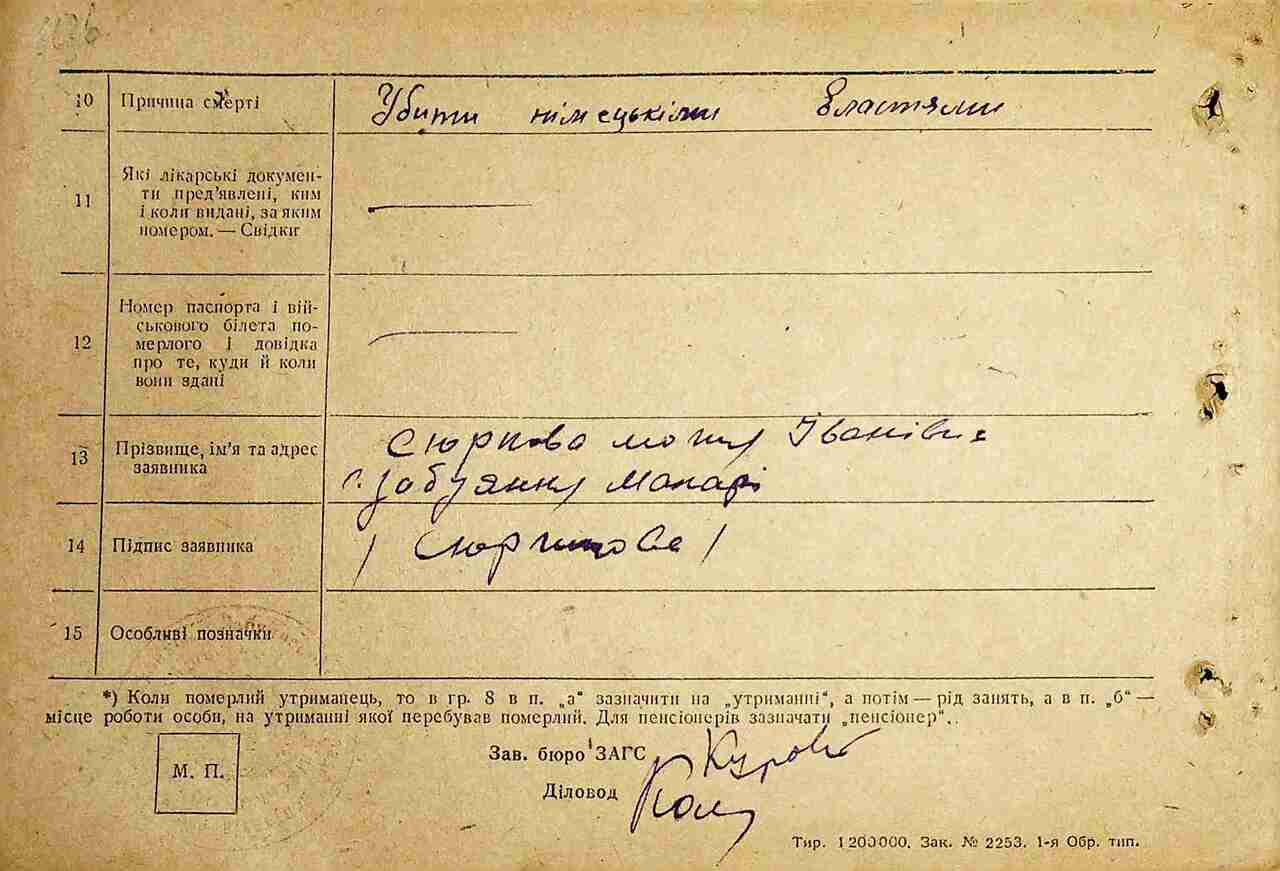 10 Причина смерті Убити німецькіми властями
11 Які лікарські докумен-
ти пред'явлені, ким
і коли видані, за яким
номером. — Свідки
12 Номер паспорта і вій-
ськового білета по-
мерлого і довідка
про те, куди й коли
вони здані
13 Прізвище, ім'я та адрес
заявника
Івановна
с. Забуяння Макарі
14 Підпис заявника
15 Особливі позначки
*) Коли померлий утриманець, то в гр. 8 в п. „а“ зазначити на „утриманні“, а потім — рід занять, а в п. „б“ —
місце роботи особи, на утриманні якої перебував померлий. Для пенсіонерів зазначати „пенсіонер“.
М. П.
Зав. бюро ЗАГС
Діловод
Тир. 1200000. Зак. № 2253. 1-я Обр. тип.